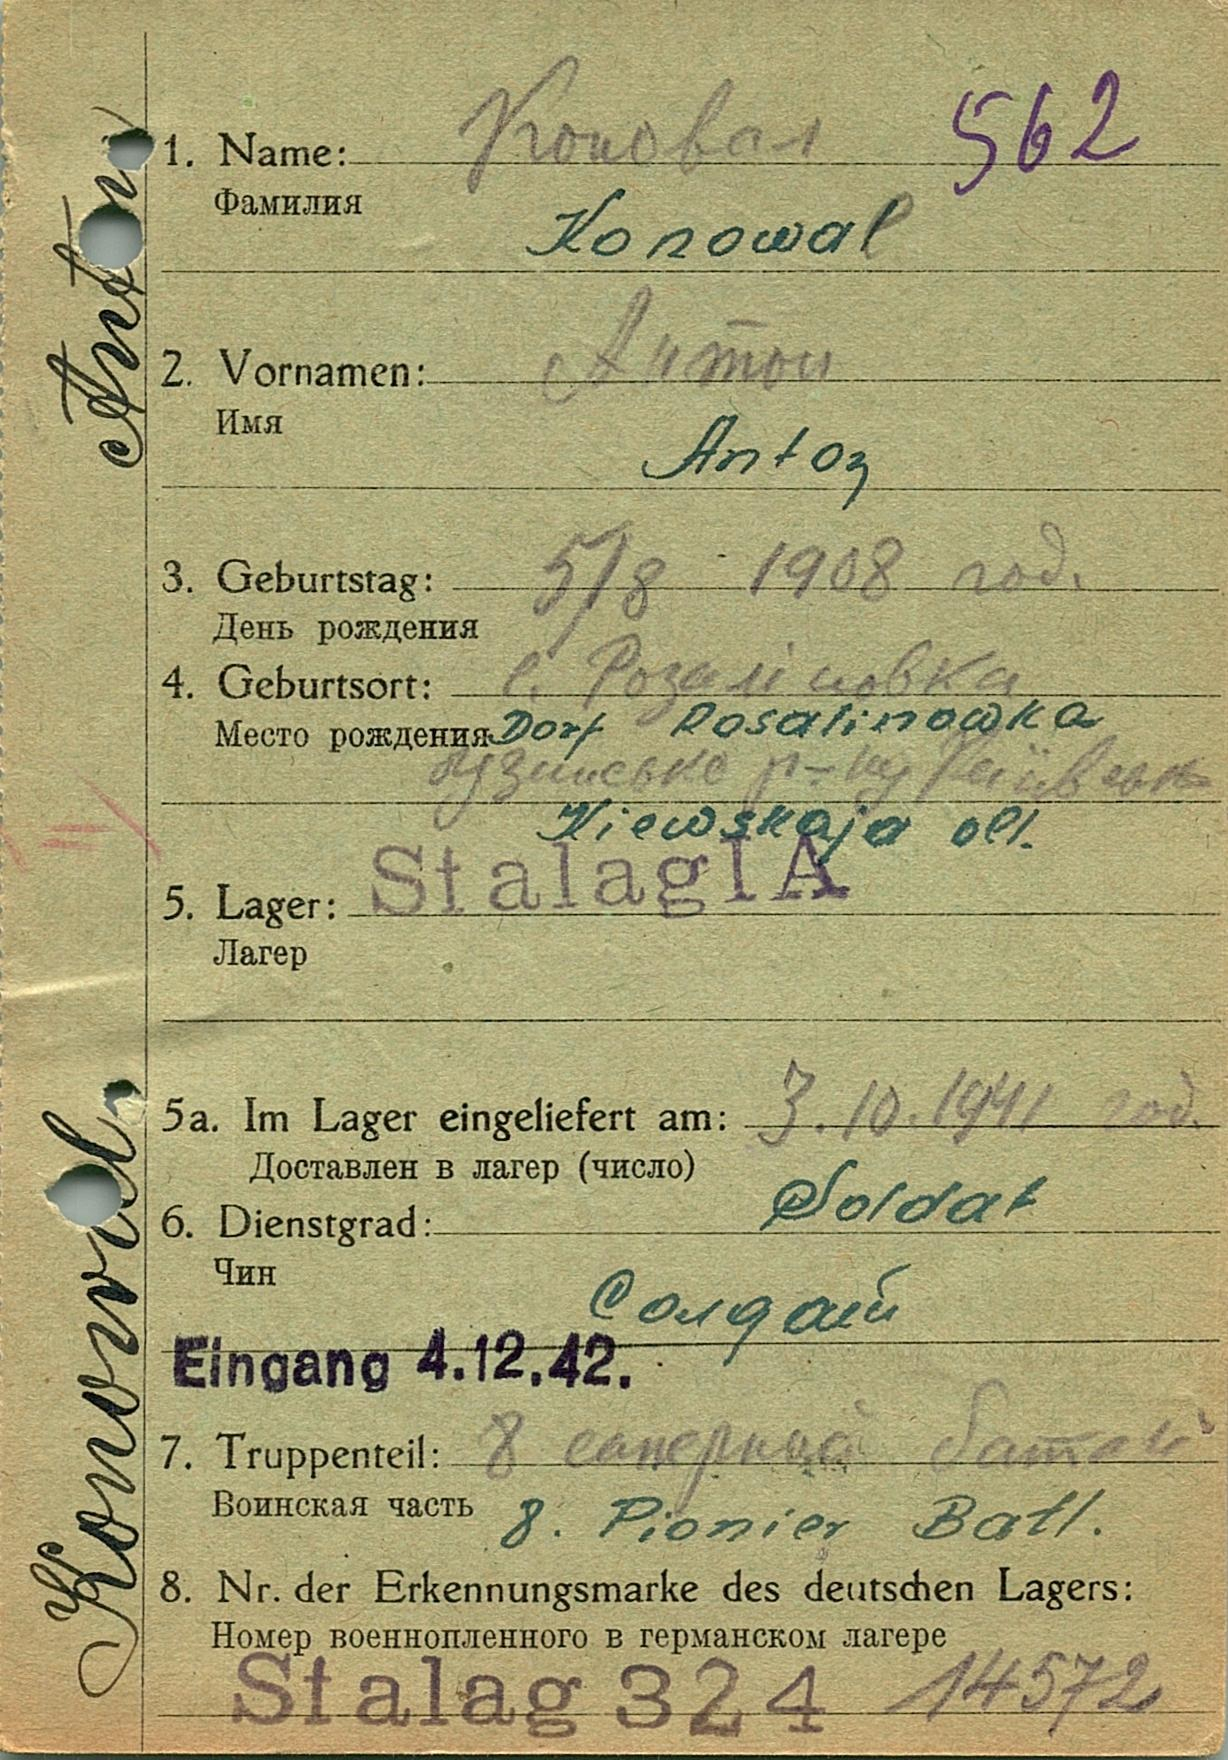 562
1. Name: Коновал
Фамилия
Konowal
2. Vornamen: Антон
Имя
Anton
3. Geburtstag: 5/8 1908 год.
День рождения
4. Geburtsort: с. Розаліновка
Место рождения Dorf Rosalinowka
р-ну
Kiewskaja obl.
5. Lager: Stalag I A
Лагер
5a. Im Lager eingeliefert am: 3.10.1941 год.
Доставлен в лагер (число)
6. Dienstgrad: Soldat
Чин
Солдат
Eingang 4.12.42.
7. Truppenteil: 8 саперный батал
Воинская часть 8. Pionier Batl.
8. Nr. der Erkennungsmarke des deutschen Lagers:
Номер военнопленного в германском лагере
Stalag 324 14572
Konowal Anton